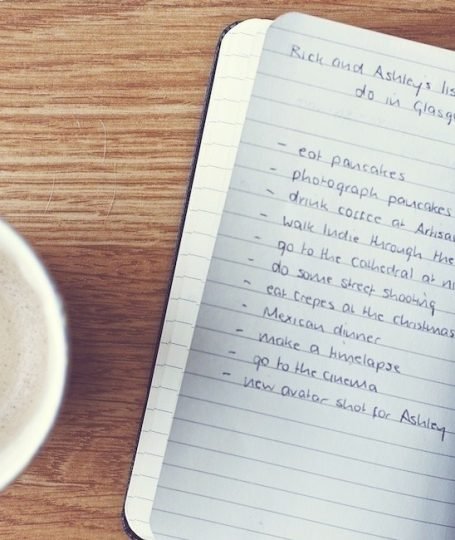 Rick and Ashley's lis
do in Glasg
- eat pancakes
- photograph pancakes
- drink coffee at Artisa
- walk Indie through the
- go to the cathedral at ni
- do some street shooting
- eat crepes at the christmas
- Mexican dinner
- make a timelapse
- go to the cinema
- new avatar shot for Ashley